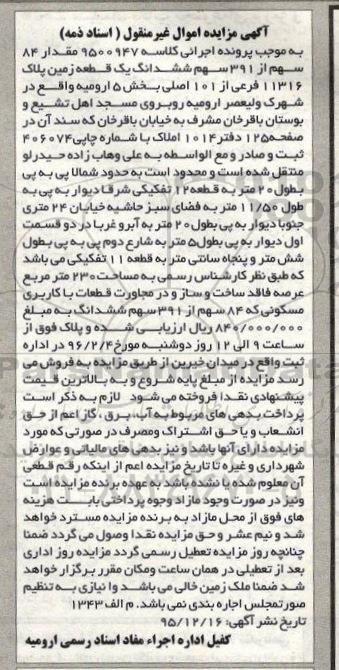 آگهی مزایده اموال غیرمنقول ( اسناد ذمه)
به موجب پرونده اجرائی کلاسه ۹۵۰۰۹۴۷ مقدار ۸۴
سهم از ۳۹۱ سهم ششدانگ یک قطعه زمین پلاک
۱۱۳۱۶ فرعی از ۱۰۱ اصلی بخش ۵ ارومیه واقع در
شهرک ولیعصر ارومیه روبروی مسجد اهل تشیع و
بوستان باقرخان مشرف به خیابان باقرخان که سند آن در
صفحه ۱۲۵ دفتر ۱۰۱۴ املاک با شماره چاپی ۴۰۶۰۷۴
ثبت و صادر و مع الواسطه به علی وهاب زاده حیدرلو
منتقل شده است و محدود است به حدود شمالا پی به پی
بطول ۲۰ متر به قطعه ۱۲ تفکیکی شرقا دیوار به پی به
طول ۱۱/۵۰ متر به فضای سبز حاشیه خیابان ۲۴ متری
جنوبا دیوار به پی بطول ۲۰ متر به آبرو غربا در دو قسمت
اول دیوار به پی بطول ۵ متر به شارع دوم پی به پی بطول
شش متر و پنجاه سانتی متر به قطعه ۱۱ تفکیکی می باشد
که طبق نظر کارشناس رسمی به مساحت ۲۳۰ متر مربع
عرصه فاقد ساخت و ساز و در مجاورت قطعات با کاربری
مسکونی که ۸۴ سهم از ۳۹۱ سهم ششدانگ به مبلغ
۸۴۰/۰۰۰/۰۰۰ ریال ارزیابی شده و پلاک فوق از
ساعت ۹ الی ۱۲ روز دوشنبه مورخ ۹۶/۲/۴ در اداره
ثبت واقع در میدان خیرین از طریق مزایده به فروش می
رسد مزایده از مبلغ پایه شروع و به بالاترین قیمت
پیشنهادی نقدا فروخته می شود لازم به ذکر است
پرداخت بدهی های مربوط به آب، برق ، گاز اعم از حق
انشعاب و یا حق اشتراک و مصرف در صورتی که مورد
مزایده دارای آنها باشد و نیز بدهی های مالیاتی و عوارض
شهرداری و غیره تا تاریخ مزایده اعم از اینکه رقم قطعی
آن معلوم شده یا نشده باشد به عهده برنده مزایده است
ونیز در صورت وجود مازاد وجوه پرداختی بابت هزینه
های فوق از محل مازاد به برنده مزایده مسترد خواهد
شد و نیم عشر و حق مزایده نقدا وصول می گردد ضمنا
چنانچه روز مزایده تعطیل رسمی گردد مزایده روز اداری
بعد از تعطیلی در همان ساعت ومکان مقرر برگزار خواهد
شد ضمنا ملک زمین خالی می باشد وا نیازی به تنظیم
صورتمجلس اجاره بندی نمی باشد. م الف ۱۳۴۳
تاریخ نشر آگهی: ۹۵/۱۲/۱۶
کفیل اداره اجراء مفاد اسناد رسمی ارومیه